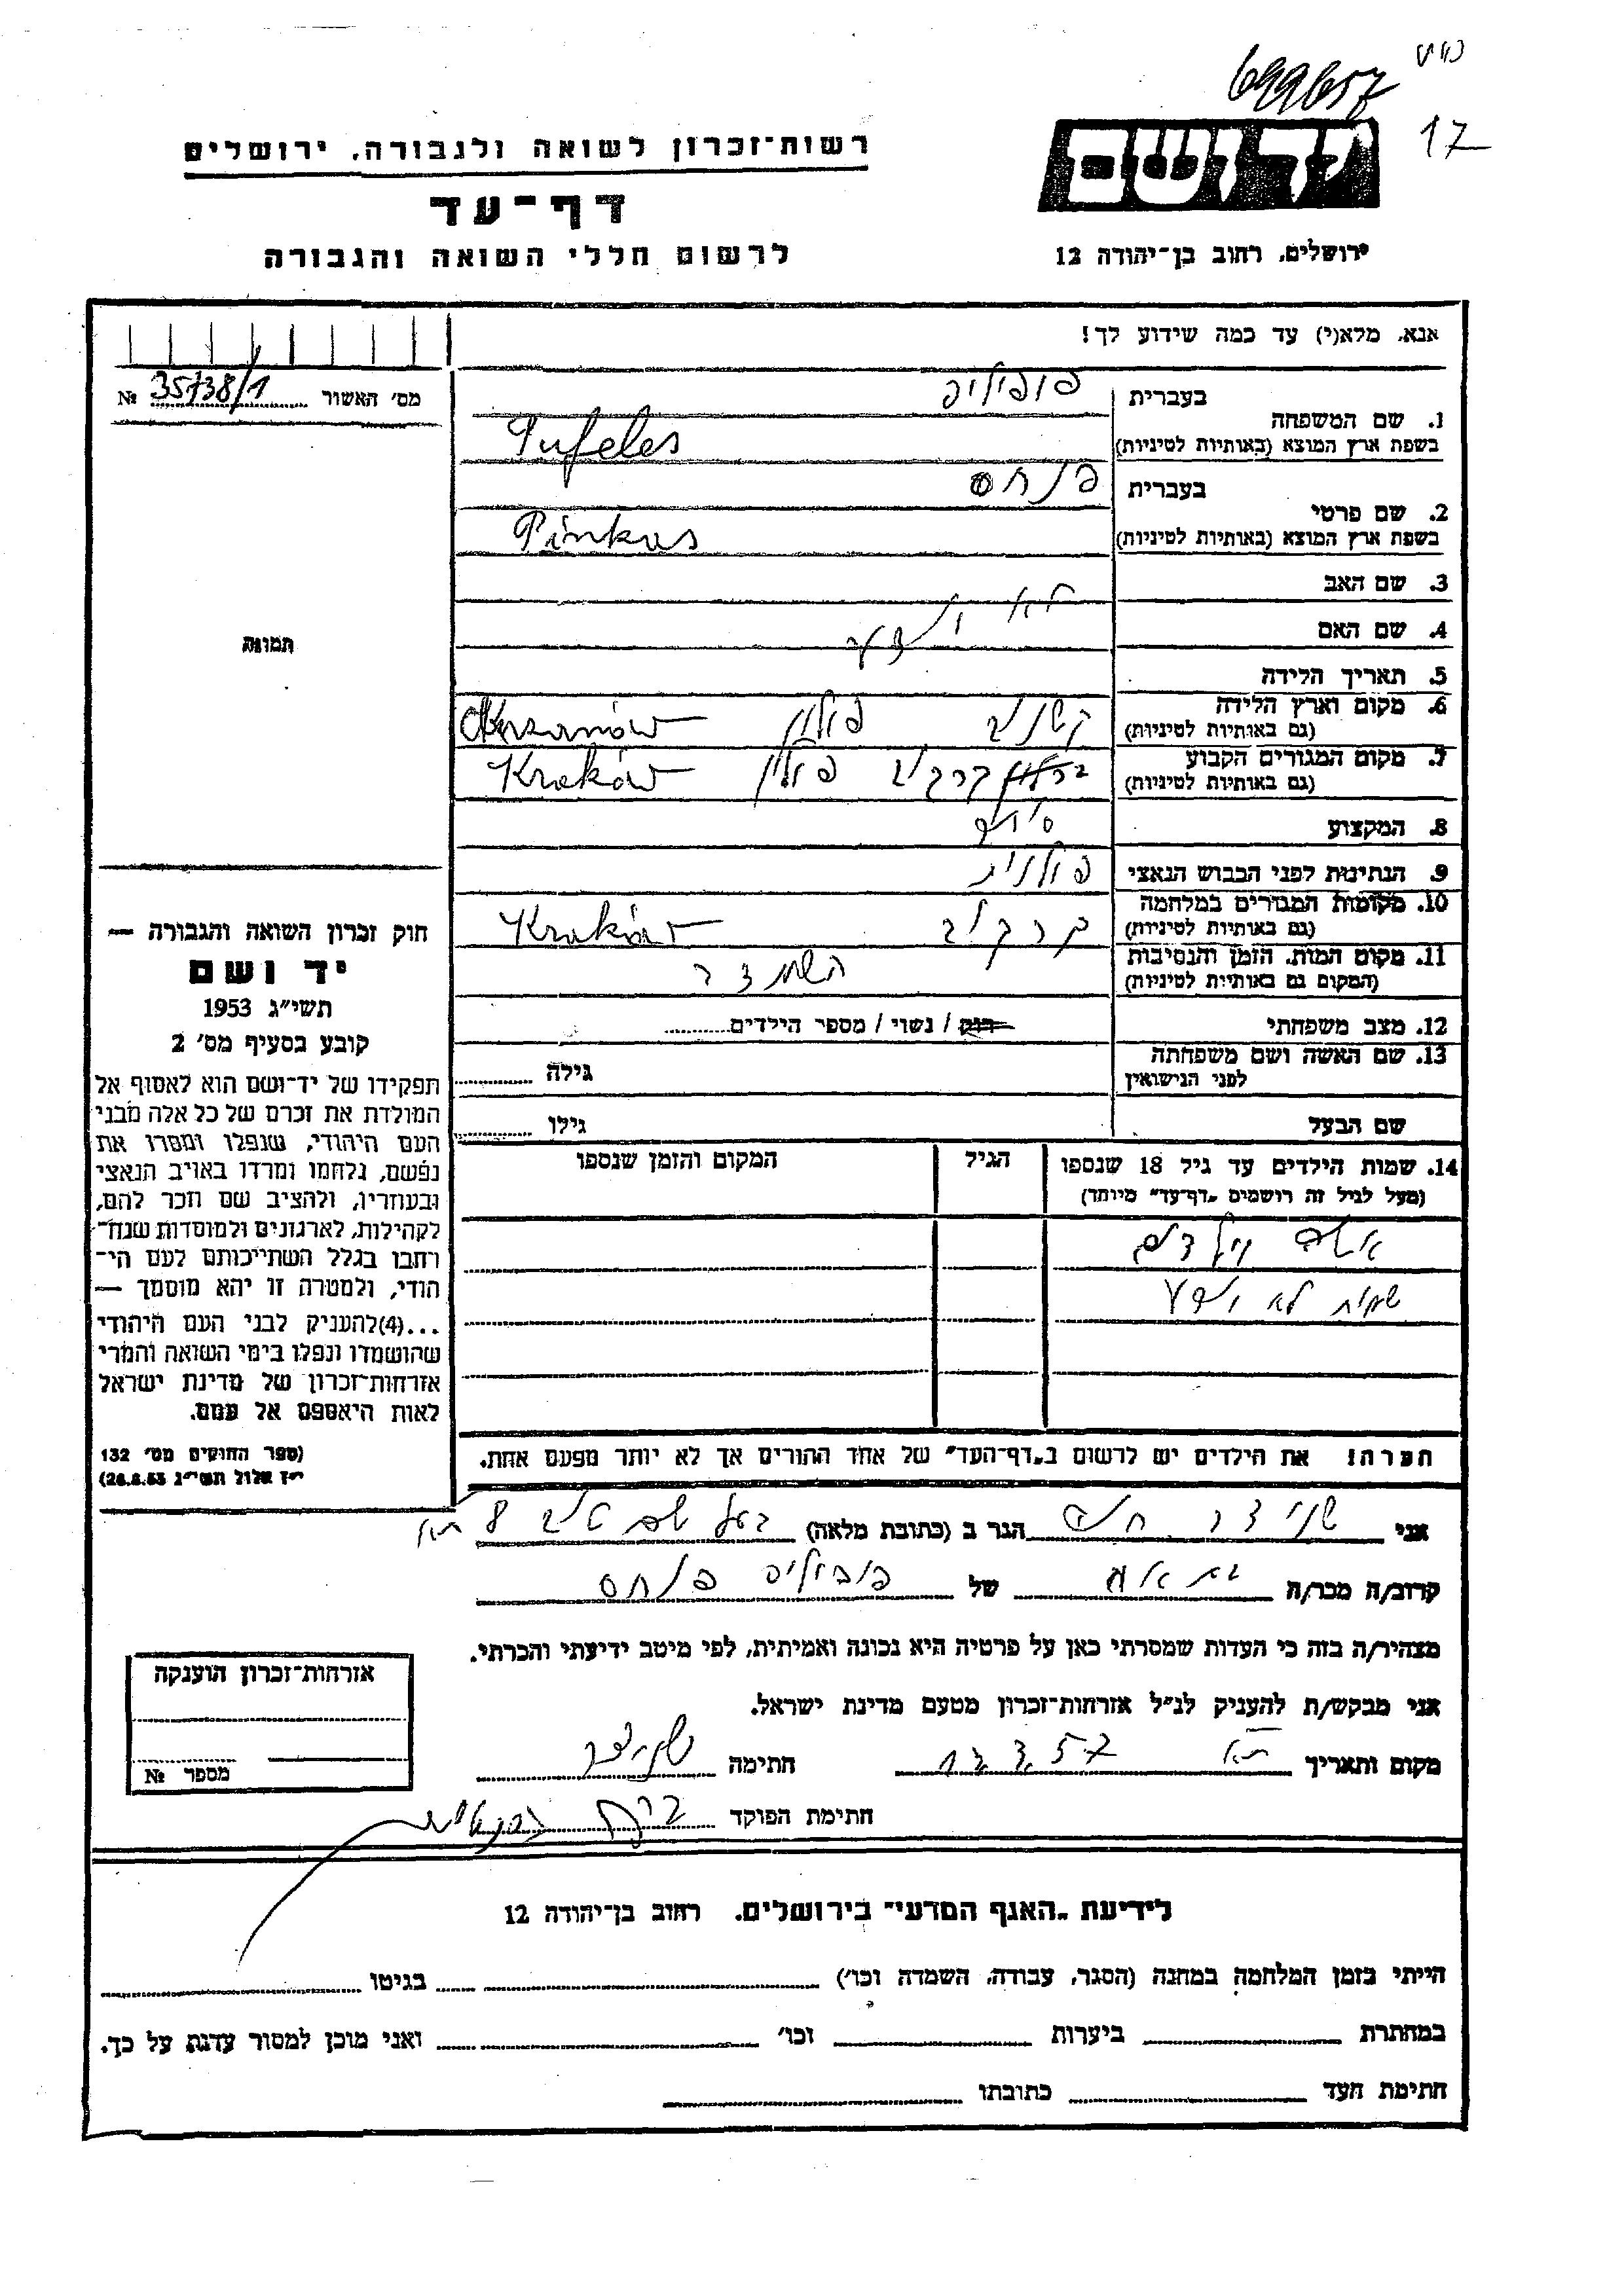 699657
17
יד ושם
ירושלים, רחוב בן־יהודה 12
רשות־זכרון לשואה ולגבורה, ירושלים
דף־עד
לרשום חללי השואה והגבורה
אנא, מלא(י) עד כמה שידוע לך!
מס' האשור 35738/1 №
1. שם המשפחה
בעברית
בשפת ארץ המוצא (באותיות לטיניות) Pufeles
2. שם פרטי
בעברית פנחס
בשפת ארץ המוצא (באותיות לטיניות) Pinkus
3. שם האב לא
4. שם האם ידוע
5. תאריך הלידה
6. מקום וארץ הלידה פולין
(גם באותיות לטיניות)
7. מקום המגורים הקבוע קרקוב פולין Kraków
(גם באותיות לטיניות)
8. המקצוע סוחר
9. הנתינות לפני הכבוש הנאצי פולנית
10. מקומות המגורים במלחמה קרקוב Kraków
(גם באותיות לטיניות)
11. מקום המות, הזמן והנסיבות
(המקום גם באותיות לטיניות)
12. מצב משפחתי רווק / נשוי / מספר הילדים
13. שם האשה ושם משפחתה
לפני הנישואין
גילה
שם הבעל גילו
14. שמות הילדים עד גיל 18 שנספו הגיל המקום והזמן שנספו
(מעל לגיל זה רושמים "דף־עד" מיוחד)
אשה וילדים
שמות לא ידוע
הערה! את הילדים יש לרשום ב"דף־העד" של אחד ההורים אך לא יותר מפעם אחת.
תמונה
חוק זכרון השואה והגבורה —
יד ושם
תשי"ג 1953
קובע בסעיף מס' 2
תפקידו של יד־ושם הוא לאסוף אל
המולדת את זכרם של כל אלה מבני
העם היהודי, שנפלו ומסרו את
נפשם, נלחמו ומרדו באויב הנאצי
ובעוזריו, ולהציב שם וזכר להם,
לקהילות, לארגונים ולמוסדות שנח־
רחבו בגלל השתייכותם לעם הי־
הודי, ולמטרה זו יהא מוסמך —
...(4)להעניק לבני העם היהודי
שהושמדו ונפלו בימי השואה והמרי
אזרחות־זכרון של מדינת ישראל
לאות היאספם אל עמם.
(ספר החוקים מס' 132
י"ז אלול תשי"ג 28.8.53)
אני חיים הגר ב (כתובת מלאה) בעל שם טוב 8 ת״א
קרוב/ה מכר/ה של פנחס
מצהיר/ה בזה כי העדות שמסרתי כאן על פרטיה היא נכונה ואמיתית, לפי מיטב ידיעתי והכרתי.
אני מבקש/ת להעניק לנ"ל אזרחות־זכרון מטעם מדינת ישראל.
מקום ותאריך ת״א חתימה
חתימת הפוקד
אזרחות־זכרון הוענקה
מספר №
לידיעת "האגף המדעי" בירושלים, רחוב בן־יהודה 12
הייתי בזמן המלחמה במחנה (הסגר, עבודה, השמדה וכו') בגיטו
במחתרת ביערות וכו' ואני מוכן למסור עדות על כך.
חתימת העד כתובתו